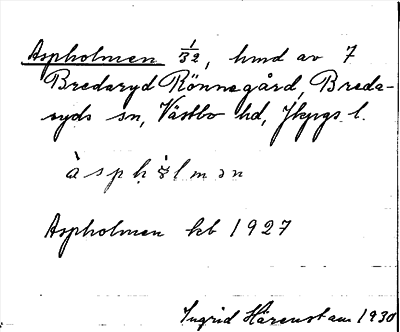 Aspholmen 1/32, hmd av 7
Bredaryd Rönnegård, Breda-
ryds sn, Västbo hd, Jkpgs l.
àsphòlmən
Aspholmen kb 1927
Ingrid Härenstam 1930